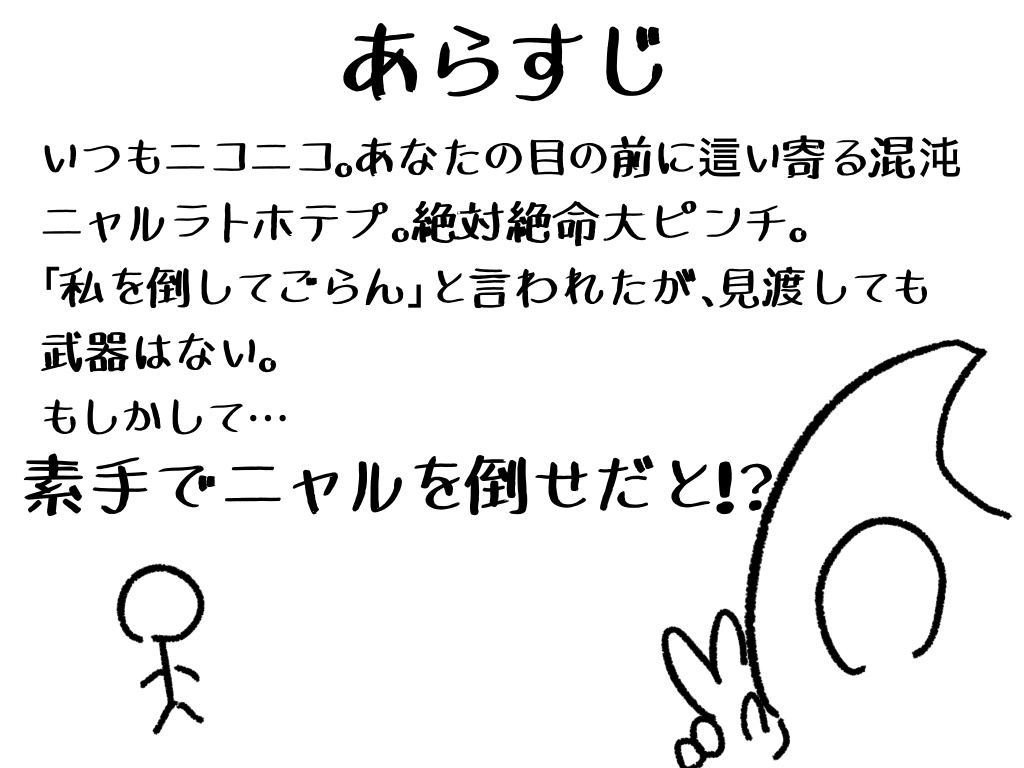 あらすじ
いつもニコニコ。あなたの目の前に這い寄る混沌
ニャルラトホテプ。絶対絶命大ピンチ。
「私を倒してごらん」と言われたが、見渡しても
武器はない。
もしかして…
素手でニャルを倒せだと!?